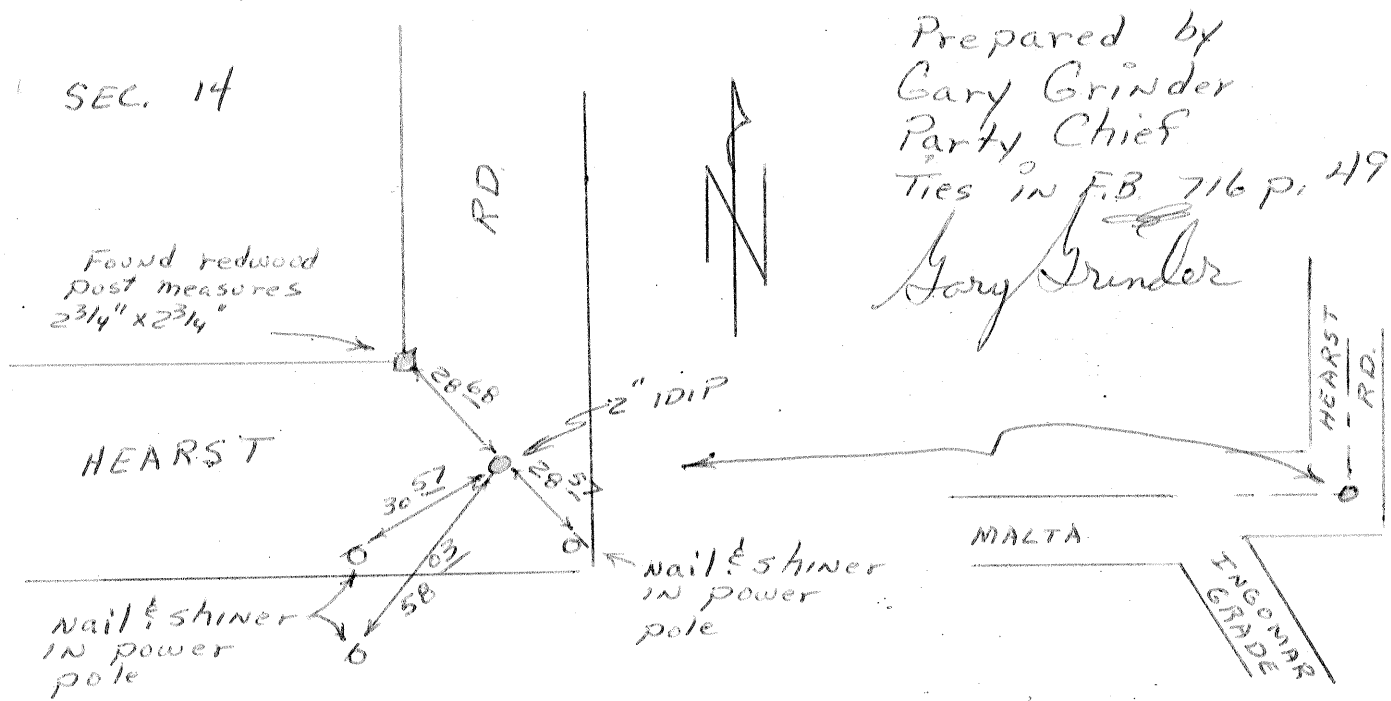 SEC. 14
RD.
Prepared by
Gary Grinder
Party Chief
Ties in F.B. 716 p. 49
Gary Grinder
Found redwood
post measures
2 3/4" x 2 3/4"
28 68
2" IDIP
HEARST
30 57
28 57
58 63
Nail & shiner
IN power
pole
Nail & shiner
IN power
pole
HEARST
RD.
MALTA
INGOMAR
GRADE
N